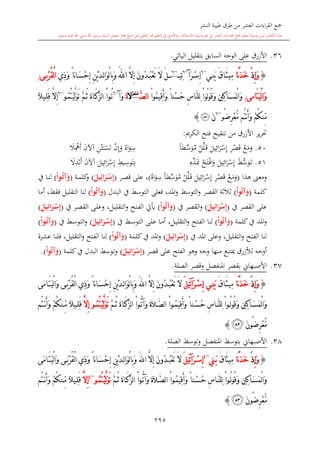 جمع القراءات العشر من طرق طيبة النشر
٣٦. الأزرق على الوجه السابق بتقليل اليائي.
﴿ وَإِذْ أَخَذْنَا مِيثَاقَ بَنِي إِسْرَائِيلَ لَا تَعْبُدُونَ إِلَّا اللَّهَ وَبِالْوَالِدَيْنِ إِحْسَانًا وَذِي الْقُرْبَى
وَالْيَتَامَى وَالْمَسَاكِينِ وَقُولُوا لِلنَّاسِ حُسْنًا وَأَقِيمُوا الصَّلَاةَ وَآتُوا الزَّكَاةَ ثُمَّ تَوَلَّيْتُمْ إِلَّا قَلِيلًا
مِنْكُمْ وَأَنْتُمْ مُعْرِضُونَ ﴾
تحرير الأزرق من تنقيح فتح الكريم:
٥٠. وَمَعْ قَصْرِ إِسْرَائِيلَ
٥١. تَوَسُّطَ إِسْرَائِيلَ
ومعنى هذا (وَمَعْ قَصْرِ إِسْرَائِيلَ)، على قصر (إِسْرَائِيلَ) وكلمة (وَآتُوا) لنا في
كلمة (وَآتُوا) ثلاثة القصر والتوسط والمد، فعلى التوسط في البدل (وَآتُوا) لنا التقليل فقط، أما
على القصر في (إِسْرَائِيلَ) والقصر في (وَآتُوا) يأتي الفتح والتقليل، وعلى القصر في (إِسْرَائِيلَ)
والمد في كلمة (وَآتُوا) لنا الفتح والتقليل، أما على التوسط في (إِسْرَائِيلَ) والتوسط في (وَآتُوا)
لنا الفتح والتقليل، وعلى المد في (إِسْرَائِيلَ) والمد في كلمة (وَآتُوا) لنا الفتح والتقليل، فلنا عشرة
أوجه للأزرق يمتنع منها وجه وهو الفتح على قصر (إِسْرَائِيلَ) وتوسط البدل في كلمة (وَآتُوا).
٣٧. الأصبهاني بقصر المنفصل وقصر الصلة.
﴿ وَإِذْ أَخَذْنَا مِيثَاقَ بَنِي إِسْرَائِيلَ لَا تَعْبُدُونَ إِلَّا اللَّهَ وَبِالْوَالِدَيْنِ إِحْسَانًا وَذِي الْقُرْبَى وَالْيَتَامَى
وَالْمَسَاكِينِ وَقُولُوا لِلنَّاسِ حُسْنًا وَأَقِيمُوا الصَّلَاةَ وَآتُوا الزَّكَاةَ ثُمَّ تَوَلَّيْتُمْ إِلَّا قَلِيلًا مِنْكُمْ وَأَنْتُمْ
مُعْرِضُونَ ٨٣ ﴾
٣٨. الأصبهاني بتوسط المنفصل وتوسط الصلة.
﴿ وَإِذْ أَخَذْنَا مِيثَاقَ بَنِي إِسْرَائِيلَ لَا تَعْبُدُونَ إِلَّا اللَّهَ وَبِالْوَالِدَيْنِ إِحْسَانًا وَذِي الْقُرْبَى وَالْيَتَامَى
وَالْمَسَاكِينِ وَقُولُوا لِلنَّاسِ حُسْنًا وَأَقِيمُوا الصَّلَاةَ وَآتُوا الزَّكَاةَ ثُمَّ تَوَلَّيْتُمْ إِلَّا قَلِيلًا مِنْكُمْ وَأَنْتُمْ
مُعْرِضُونَ ٨٣ ﴾
٢٩٥